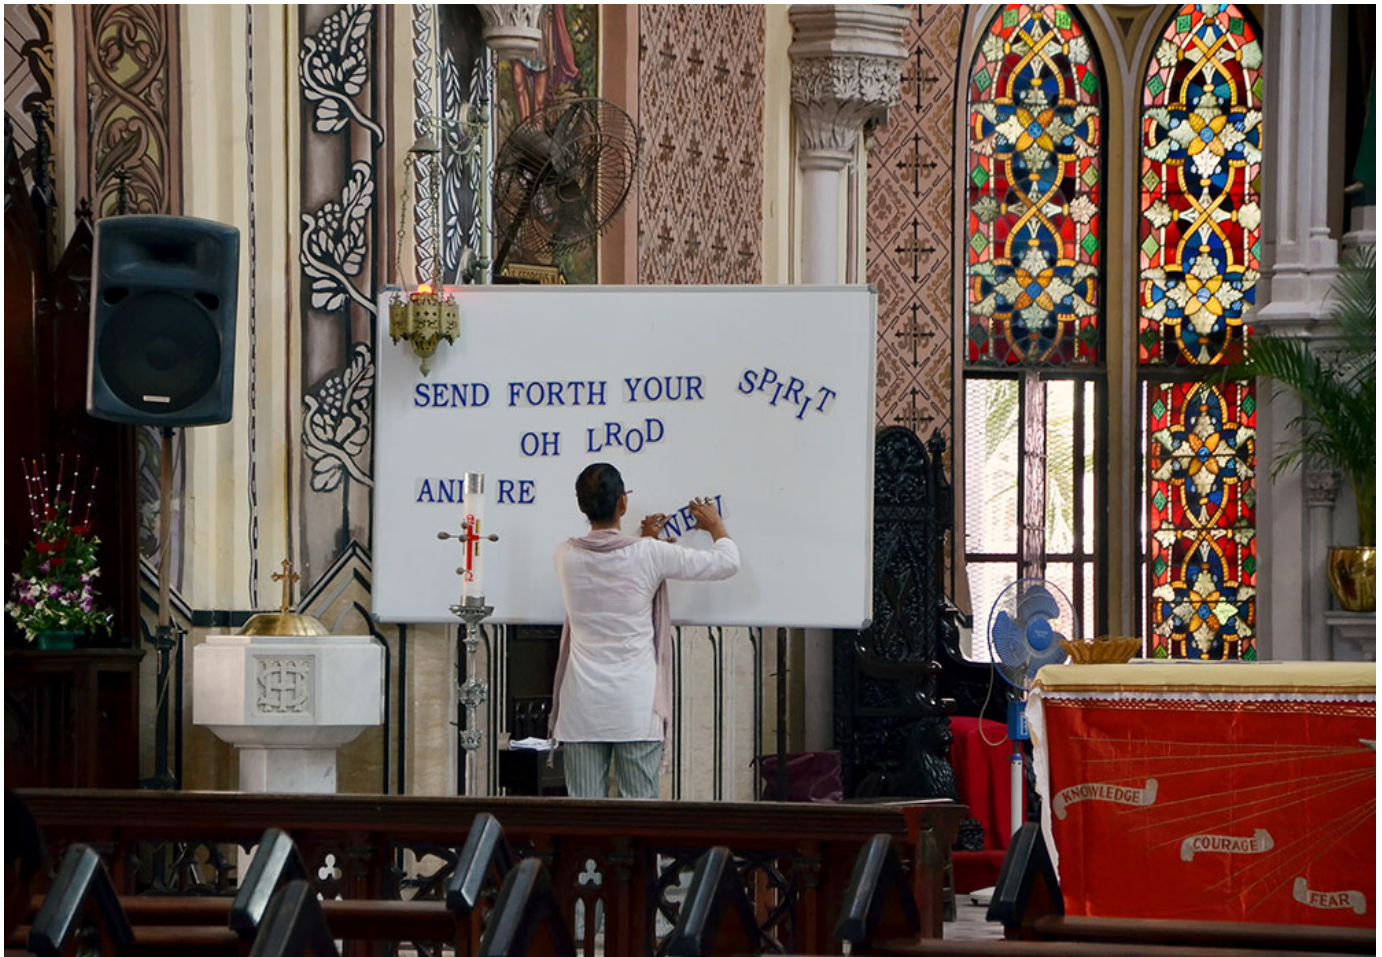 SEND FORTH YOUR SPIRIT
OH LROD
AND RE NEW
KNOWLEDGE
COURAGE
FEAR